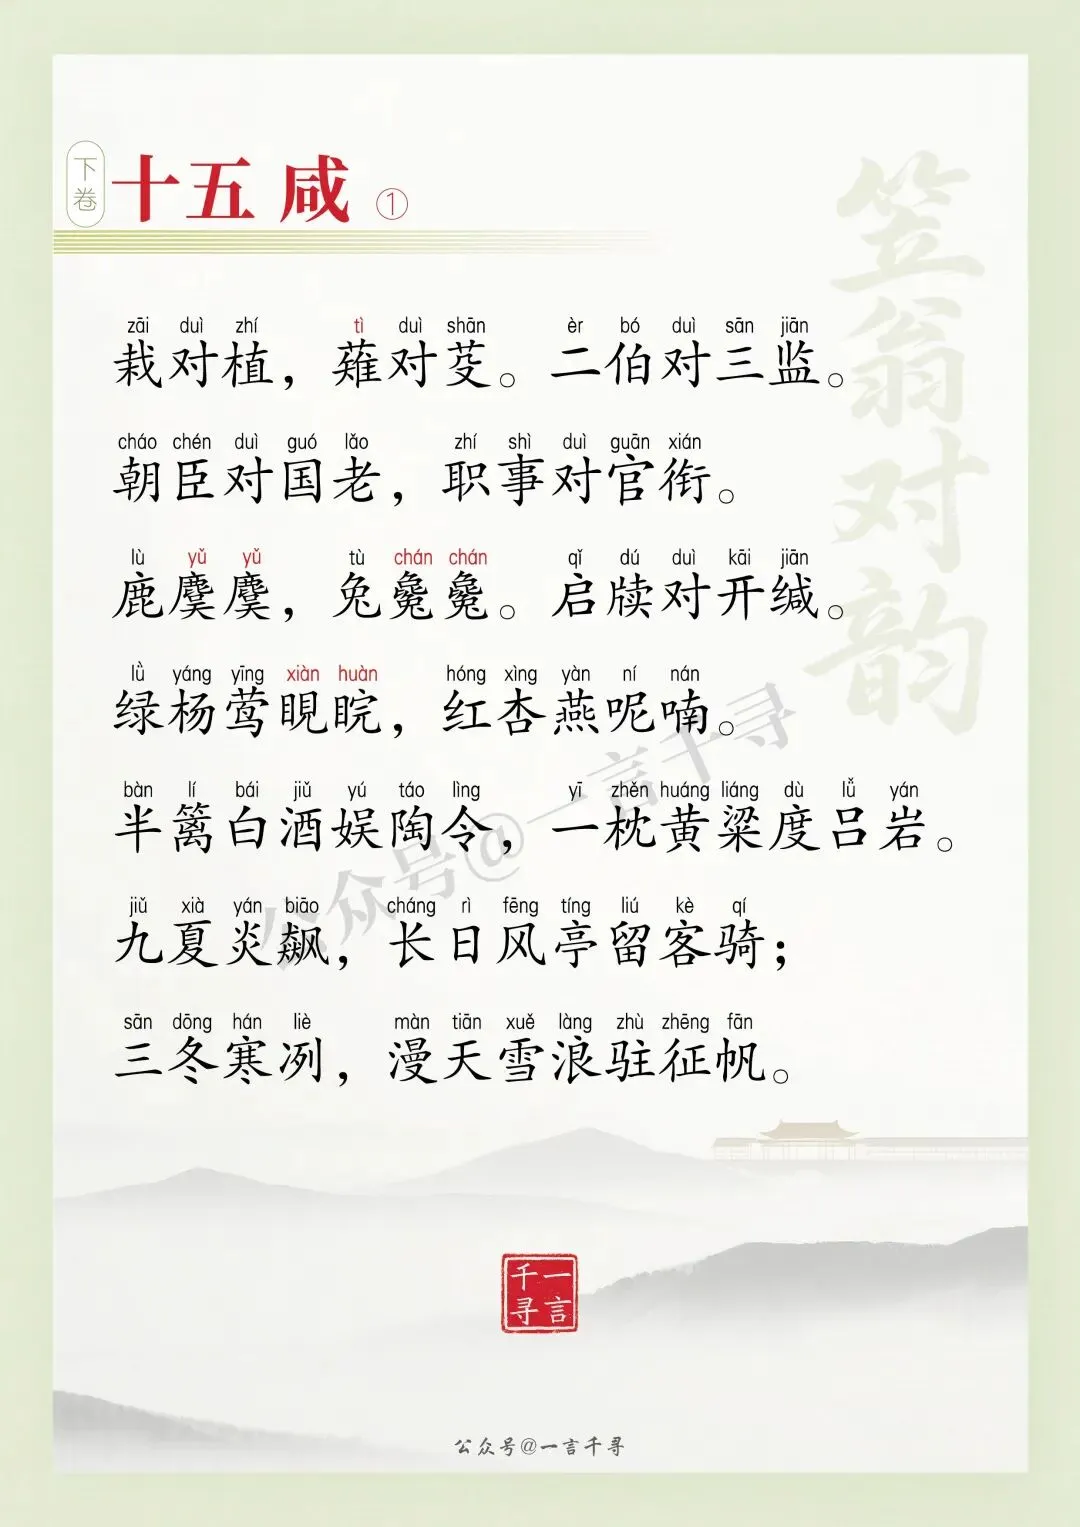 下卷
十五 咸 ①
笠翁对韵
zāi duì zhí tì duì shān èr bó duì sān jiān
栽对植，薙对芟。二伯对三监。
cháo chén duì guó lǎo zhí shì duì guān xián
朝臣对国老，职事对官衔。
lù yǔ yǔ tù chán chán qǐ dú duì kāi jiān
鹿麌麌，兔毚毚。启牍对开缄。
lǜ yáng yīng xiàn huàn hóng xìng yàn ní nán
绿杨莺睍睆，红杏燕呢喃。
bàn lí bái jiǔ yú táo lìng yī zhěn huáng liáng dù lǚ yán
半篱白酒娱陶令，一枕黄粱度吕岩。
jiǔ xià yán biāo cháng rì fēng tíng liú kè qí
九夏炎飙，长日风亭留客骑；
sān dōng hán liè màn tiān xuě làng zhù zhēng fān
三冬寒冽，漫天雪浪驻征帆。
公众号@一言千寻
一言千寻
公众号@一言千寻